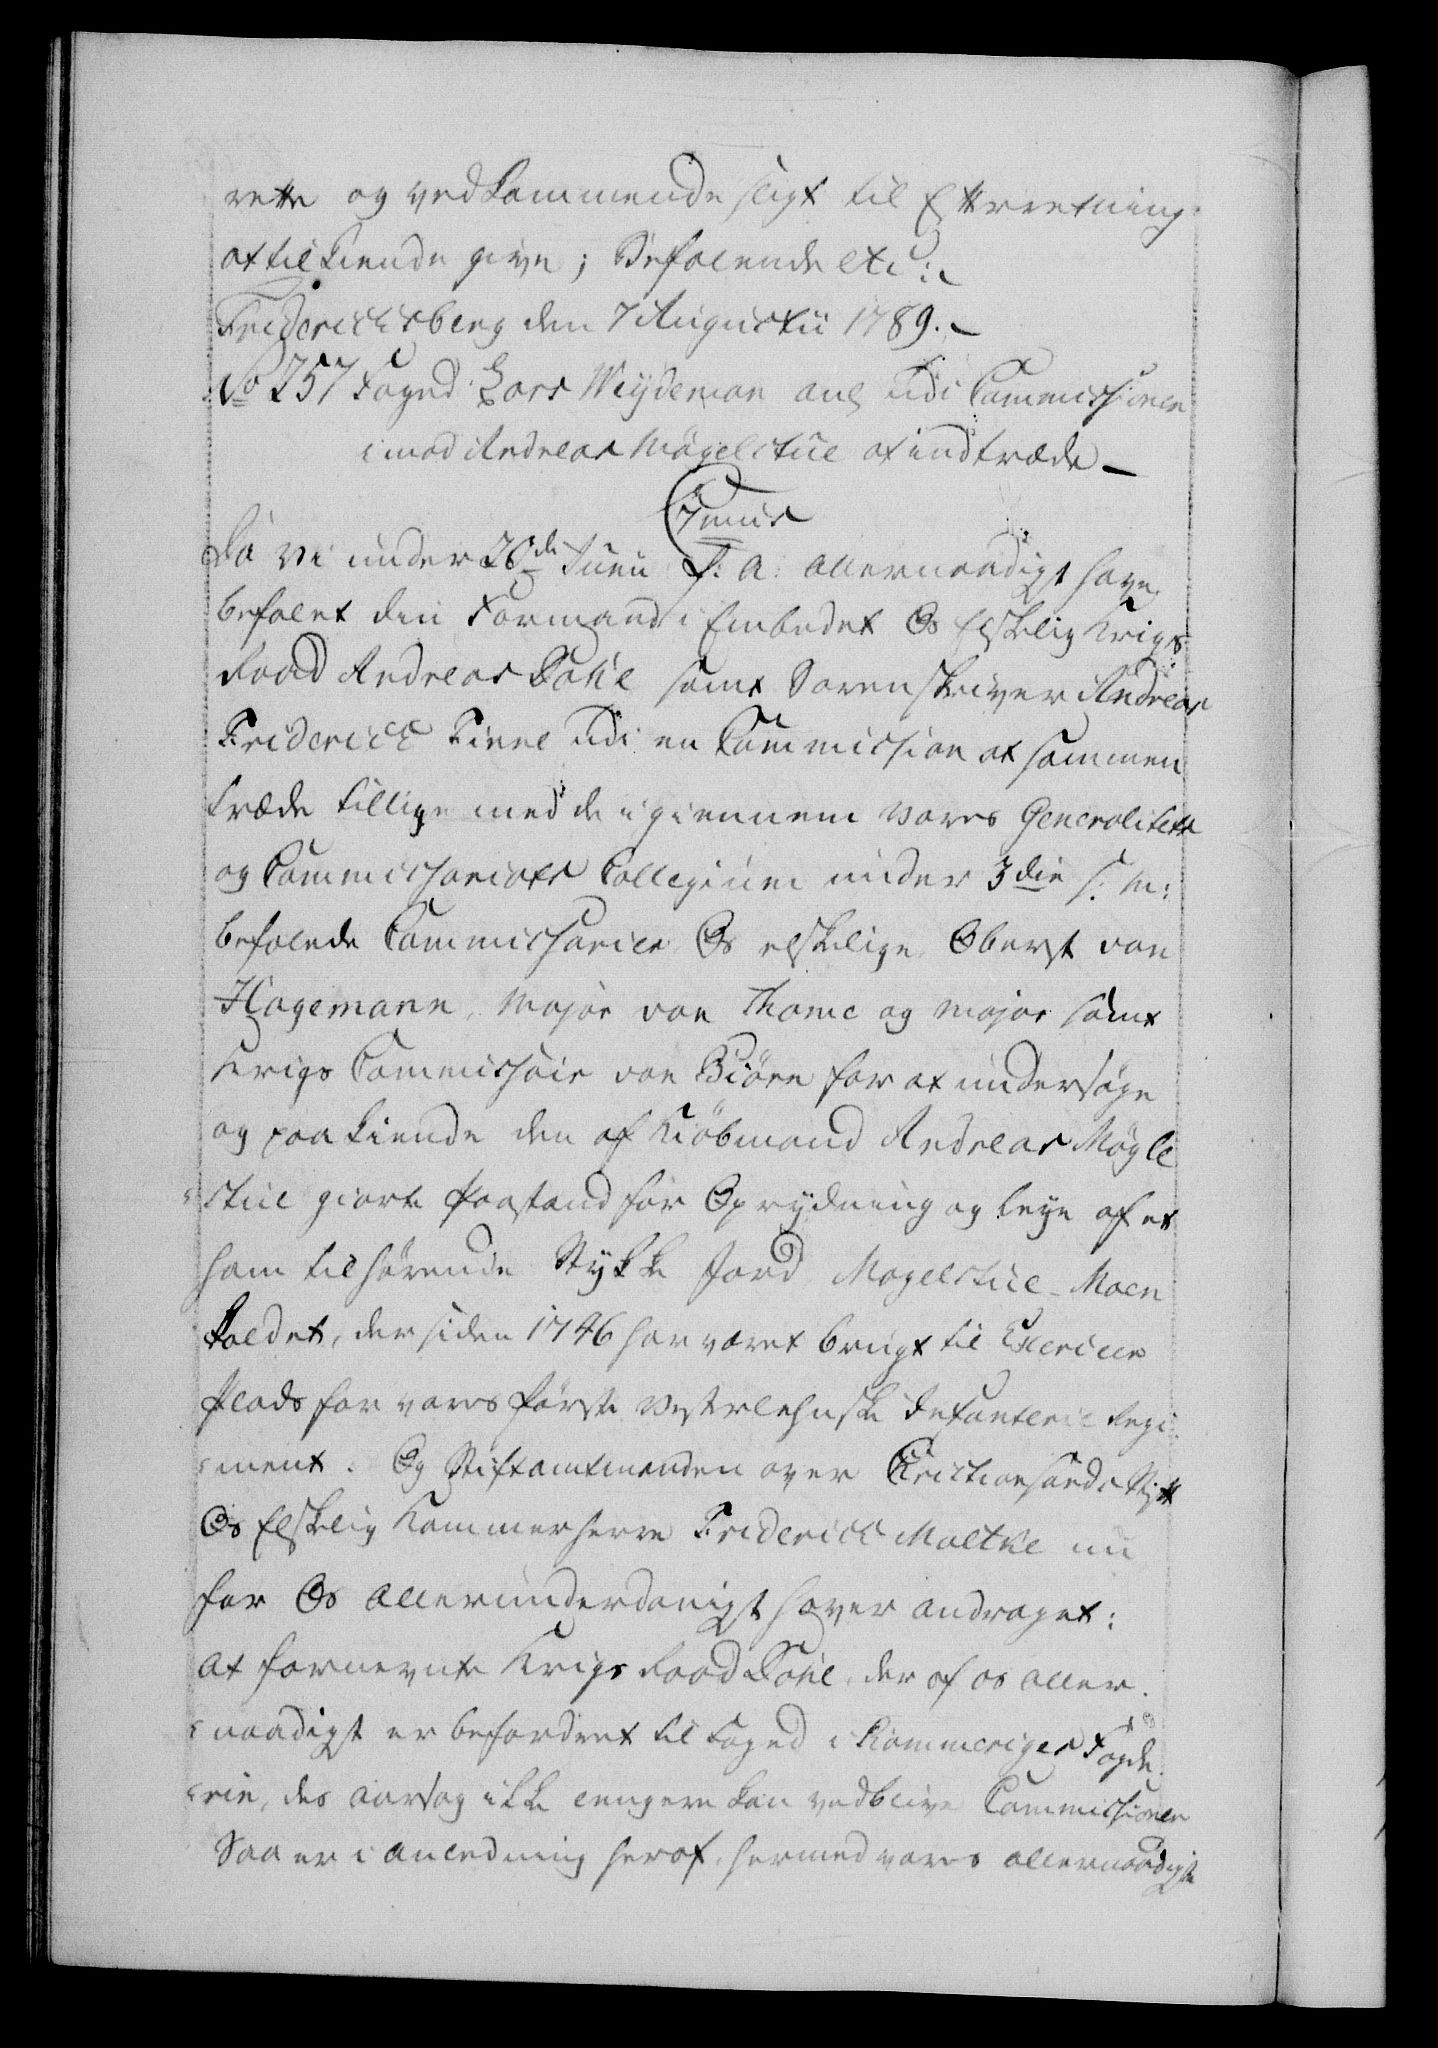 rette og vedkommende sligt til Efterretning
at tilkiende give; Befalende etc:
Friderichsberg den 7 Augustii 1789.
No 257 Foged Lars Weydeman ang udi Commissionen
imod Andreas Møgelstue at indtræde
7mus
Da vi under 26de Junii h: a: allernaadigst have
befalet din Formand i Embedet Os Elskelig Krigs
Raad Andreas Dahl samt Sorenskriver Andreas
Friderich Finne udi en Commission at sammen
træde tillige med de igiennem vores Generalitets
og Commissariats Collegium under 3die s: m:
befalede Commissarier Os elskelige Oberst von
Hagemann, Major von Thome og Major samt
Krigs Commissair von Biörn for at undersøge
og paakiende den af Kiöbmand Andreas Møgle
stue giorte Paastand for Oprydning og leye af et
ham tilhørende Stykke Jord Mogelstue-Moen
kaldet, der siden 1746 har været brugt til Exerceer
Plads for vores første Vesterlehnske Infanterie Regi
ment. Og Stiftamtmanden over Christiansands Stift
Os Elskelig Kammerherre Friderich Moltke nu
for Os allerunderdanigst haver andraget:
at fornevnte Krigs Raad Dahl, der af os aller
naadigst er befordret til Foged i Rommeriges Fogde
rie, des aarsag ikke lengere kan vedblive Commissionen
Saa er i anledning heraf, hermed vores allernaadigste